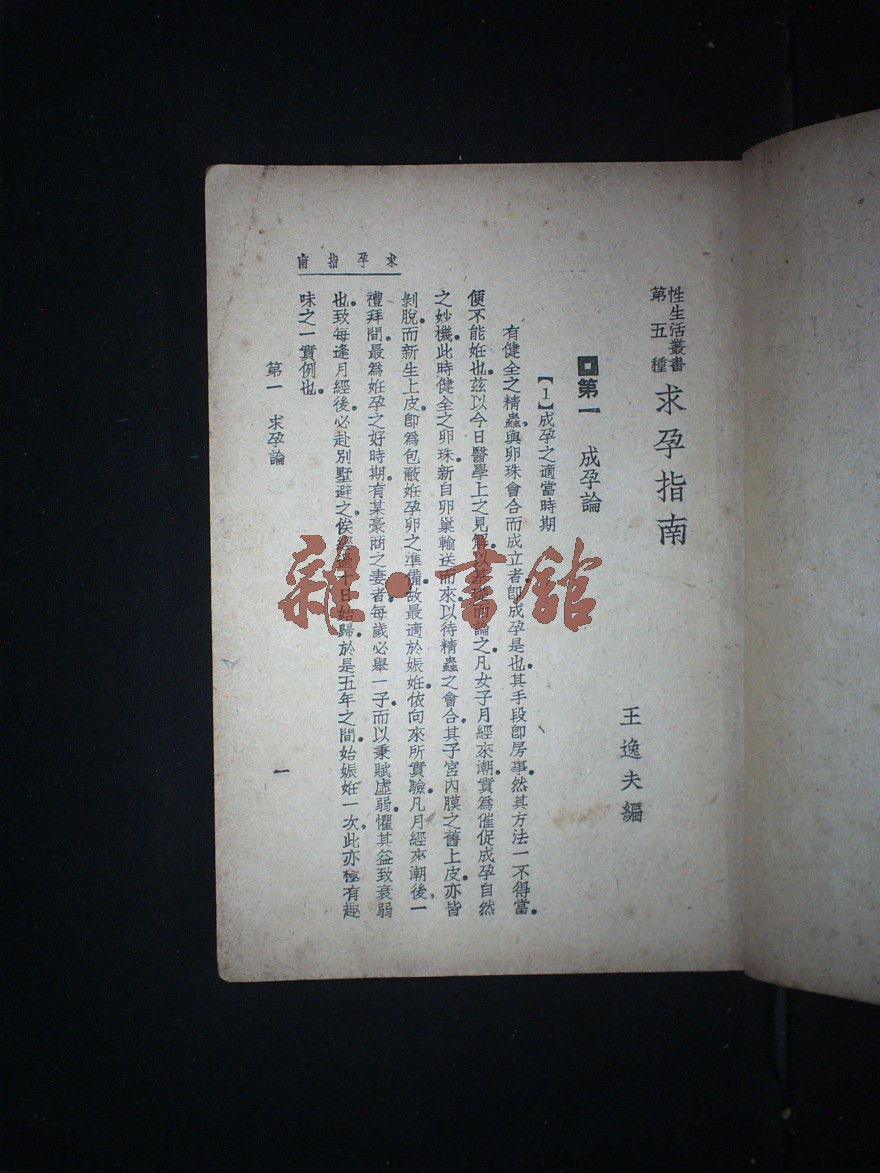 性生活叢書
第五種
求孕指南
王逸夫編
第一 成孕論
【1】成孕之適當時期
有健全之精蟲與卵珠會合而成立者卽成孕是也其手段卽房事然其方法一不得當
便不能妊也茲以今日醫學上之見解以基礎而論之凡女子月經來潮實爲催促成孕自然
之妙機此時健全之卵珠新自卵巢輸送而來以待精蟲之會合其子宮內膜之舊上皮亦皆
剝脫而新生上皮卽爲包蔽妊孕卵之準備故最適於娠妊依向來所實驗凡月經來潮後一
禮拜間最爲妊孕之好時期有某豪商之妻者每歲必舉一子而以秉賦虛弱懼其益致衰弱
也致每逢月經後必赴別墅避之俟經過十日始歸於是五年之間始娠妊一次此亦極有趣
味之一實例也
求孕指南
第一 求孕論
一
雜·書館